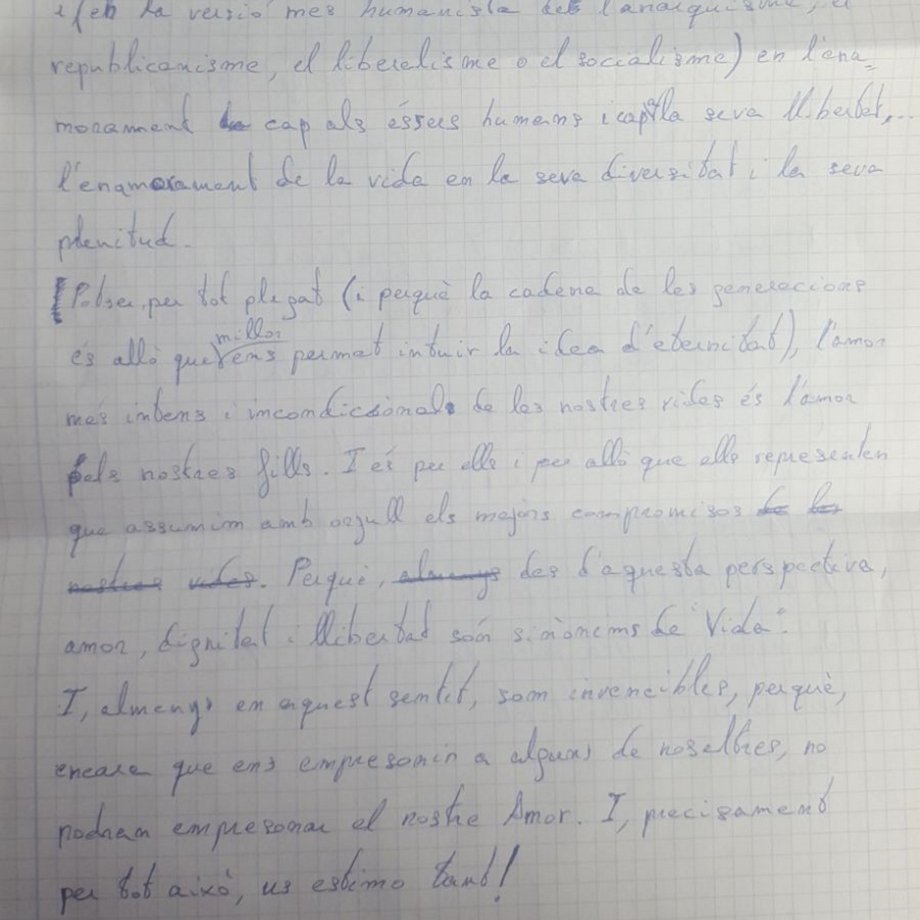 i (en la versió més humanista de l'anarquisme, el
republicanisme, el liberalisme o el socialisme) en l'ena-
morament cap als éssers humans i cap a la seva llibertat,...
l'enamorament de la vida en la seva diversitat i la seva
plenitud.
Potser, per tot plegat (i perquè la cadena de les generacions
és allò que millor ens permet intuir la idea d'eternitat), l'amor
més intens i incondicional de les nostres vides és l'amor
pels nostres fills. I és per ells i per allò que ells representen
que assumim amb orgull els majors compromisos de les
nostres vides. Perquè, almenys des d'aquesta perspectiva,
amor, dignitat i llibertat són sinònims de "Vida".
I, almenys en aquest sentit, som invencibles, perquè,
encara que ens empresonin a alguns de nosaltres, no
podran empresonar el nostre Amor. I, precisament
per tot això, us estimo tant!